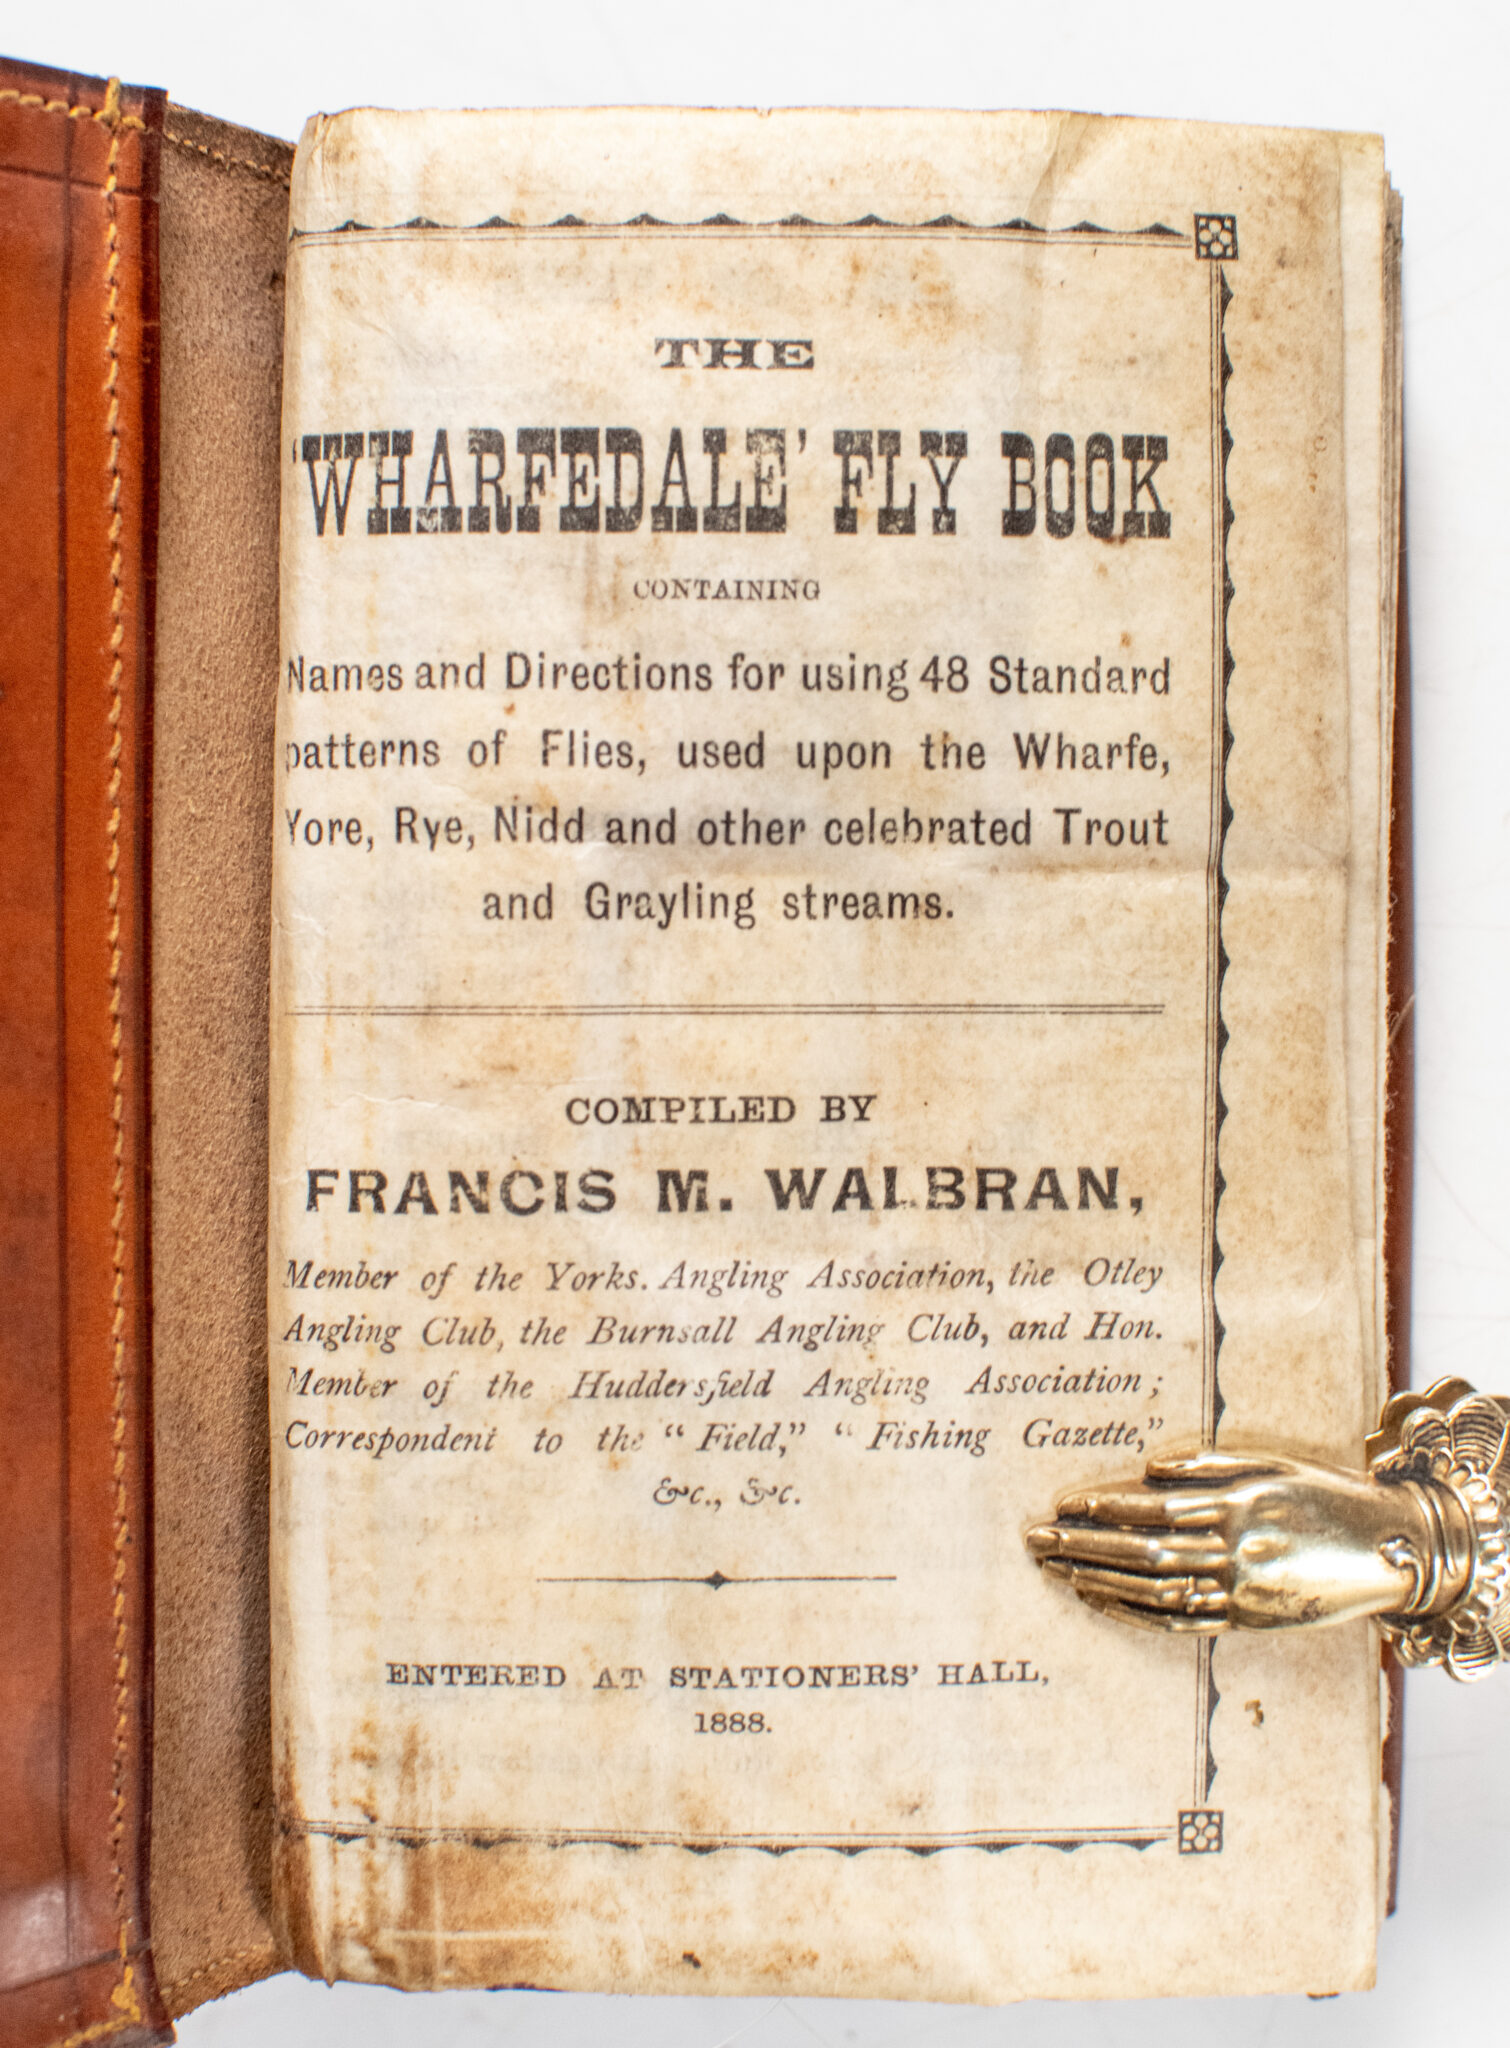 THE
'WHARFEDALE' FLY BOOK
CONTAINING
Names and Directions for using 48 Standard
patterns of Flies, used upon the Wharfe,
Yore, Rye, Nidd and other celebrated Trout
and Grayling streams.
COMPILED BY
FRANCIS M. WALBRAN,
Member of the Yorks. Angling Association, the Otley
Angling Club, the Burnsall Angling Club, and Hon.
Member of the Huddersfield Angling Association;
Correspondent to the "Field," "Fishing Gazette,"
&c., &c.
ENTERED AT STATIONERS' HALL,
1888.